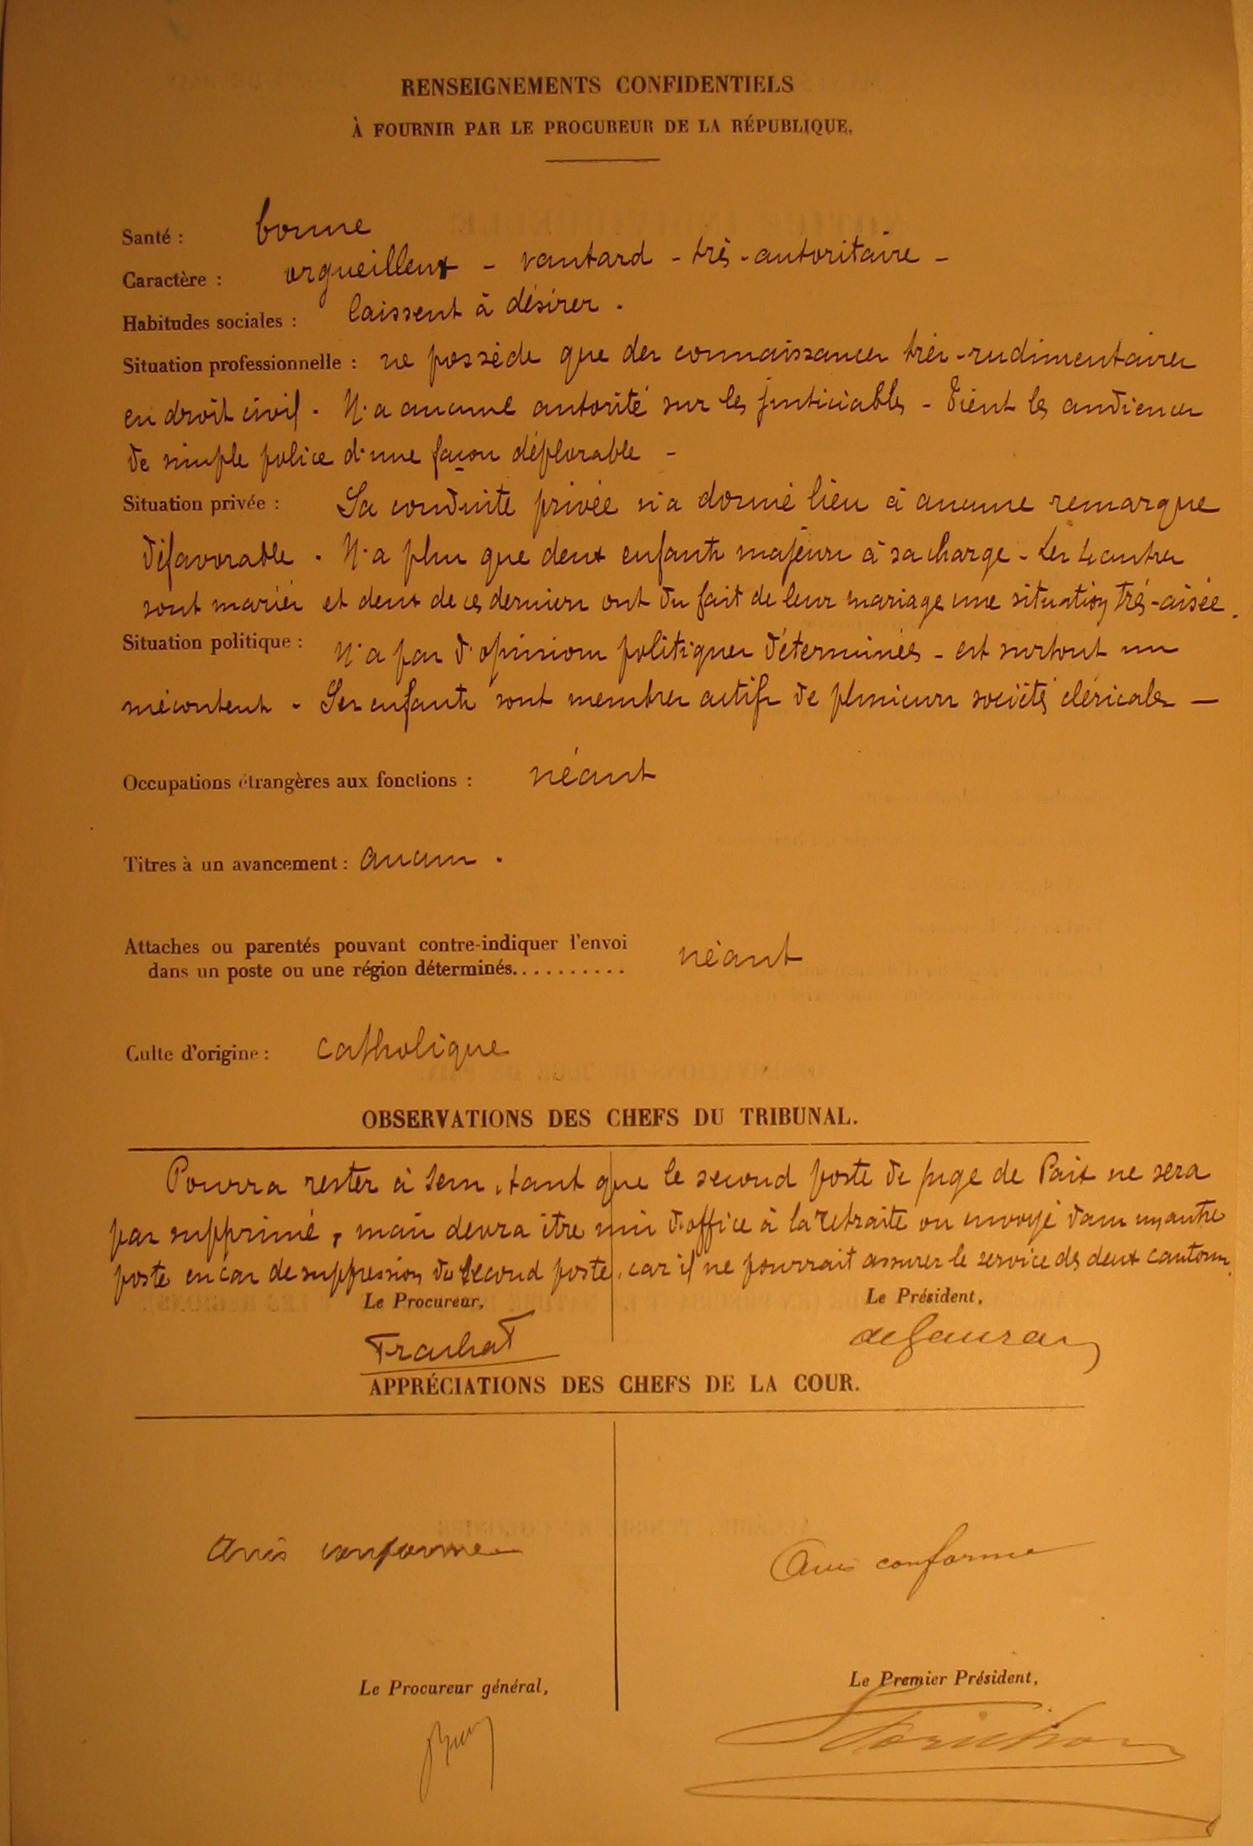 RENSEIGNEMENTS CONFIDENTIELS
À FOURNIR PAR LE PROCUREUR DE LA RÉPUBLIQUE.
Santé : bonne
Caractère : orgueilleux - vantard - très-autoritaire -
Habitudes sociales : laissent à désirer .
Situation professionnelle : ne possède que des connaissances très-rudimentaires
en droit civil . N'a aucune autorité sur les justiciables - Tient les audiences
de simple police d'une façon déplorable -
Situation privée : Sa conduite privée n'a donné lieu à aucune remarque
défavorable . N'a plus que deux enfants majeurs à sa charge - Les 4 autres
sont mariés et deux de ces derniers ont du fait de leur mariage une situation très-aisée .
Situation politique : N'a pas d'opinions politiques déterminées - est surtout un
mécontent - Ses enfants sont membres actifs de plusieurs sociétés cléricales —
Occupations étrangères aux fonctions : néant
Titres à un avancement : aucun .
Attaches ou parentés pouvant contre-indiquer l'envoi
dans un poste ou une région déterminés.......... néant
Culte d'origine : catholique
OBSERVATIONS DES CHEFS DU TRIBUNAL.
Pourra rester à Sens, tant que le second poste de juge de Paix ne sera
pas supprimé, mais devra être mis d'office à la retraite ou envoyé dans un autre
poste en cas de suppression du second poste, car il ne pourrait assurer le service des deux cantons.
Le Procureur, Le Président,
APPRÉCIATIONS DES CHEFS DE LA COUR.
Avis conforme Avis conforme
Le Procureur général, Le Premier Président,